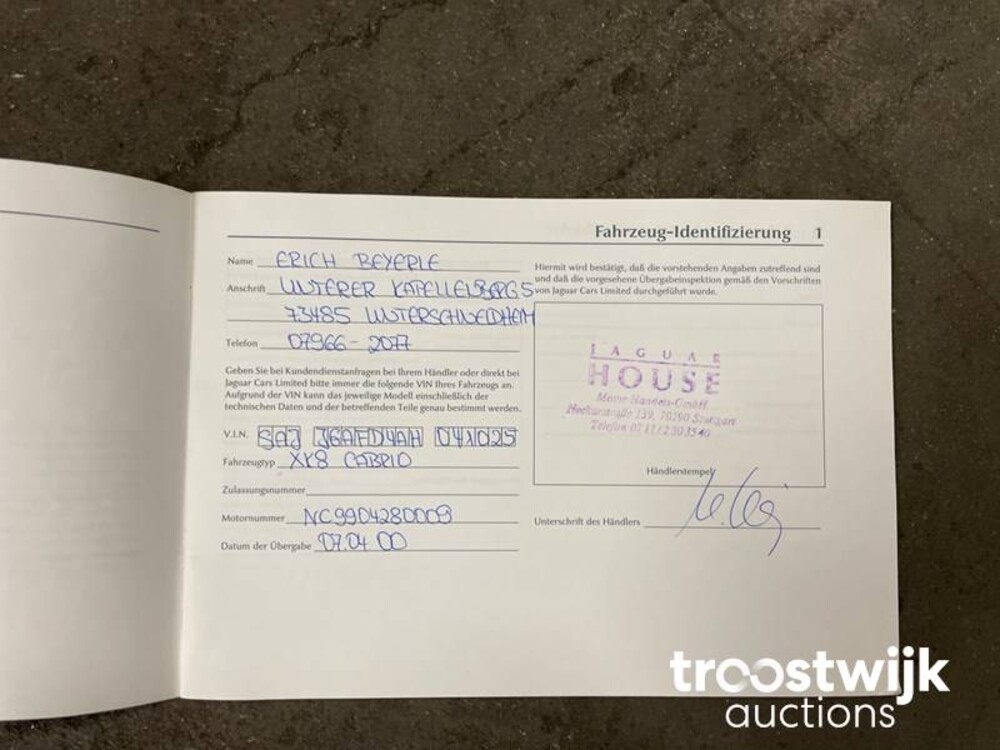 Fahrzeug-Identifizierung 1
Name ERICH BEYERLE
Anschrift UNTERER KAPELLENBERG 5
73485 UNTERSCHNEIDHEIM
Telefon 07966-2077
Geben Sie bei Kundendienstanfragen bei Ihrem Händler oder direkt bei
Jaguar Cars Limited bitte immer die folgende VIN Ihres Fahrzeugs an.
Aufgrund der VIN kann das jeweilige Modell einschließlich der
technischen Daten und der betreffenden Teile genau bestimmt werden.
V.I.N. SAJ JGAFD4AH 041025
Fahrzeugtyp XK8 CABRIO
Zulassungsnummer
Motornummer NC9904280009
Datum der Übergabe 07.04 00
Hiermit wird bestätigt, daß die vorstehenden Angaben zutreffend sind
und daß die vorgesehene Übergabeinspektion gemäß den Vorschriften
von Jaguar Cars Limited durchgeführt wurde.
JAGUAR
HOUSE
Handels-GmbH
Neckarstraße 139, 70190 Stuttgart
Telefon
Händlerstempel
Unterschrift des Händlers
troostwijk
auctions